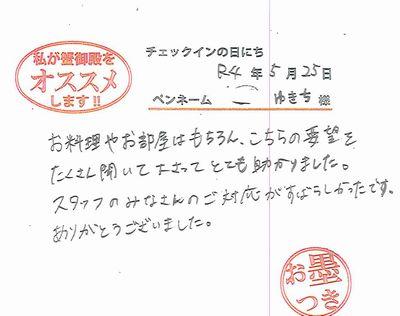 私が蟹御殿を
オススメ
します!!
チェックインの日にち
R4 年 5 月 25日
ペンネーム ー ゆきち 様
お料理やお部屋はもちろん、こちらの要望を
たくさん聞いて下さってとても助かりました。
スタッフのみなさんのご対応がすばらしかったです。
ありがとうございました。
お墨
つき